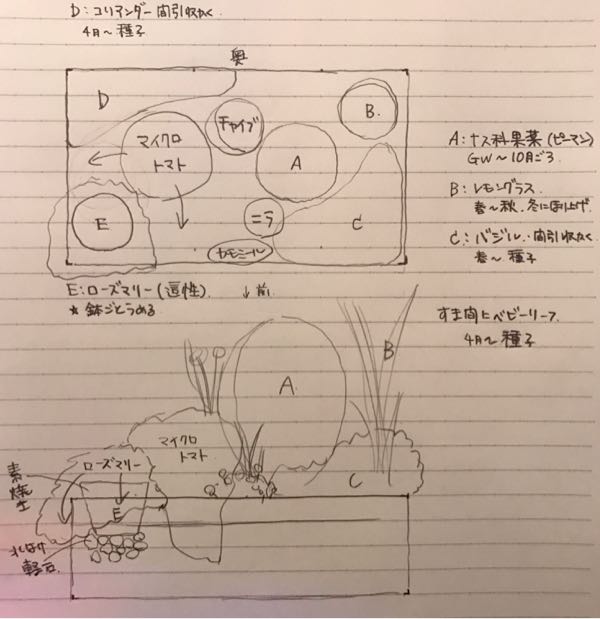 D：コリアンダー 間引収かく
4月～種子
奥
D
チャイブ
B.
マイクロ
トマト
A
E
ニラ
C
カモミール
A：ナス科果菜(ピーマン)
GW～10月ごろ
B：レモングラス
春～秋. 冬にほり上げ
C：バジル・間引収かく
春～種子
E：ローズマリー
★ 鉢ごとうめる
↓前
すき間にベビーリーフ
4月～種子
A
B
マイクロ
トマト
ローズマリー
C
E
素焼
軽石